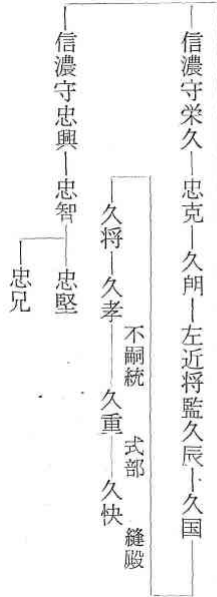 信濃守栄久―忠克―久朗―左近将監久辰―久国
久将―久孝―久重―久快
不嗣統 式部 縫殿
信濃守忠興―忠智―忠堅
忠兄